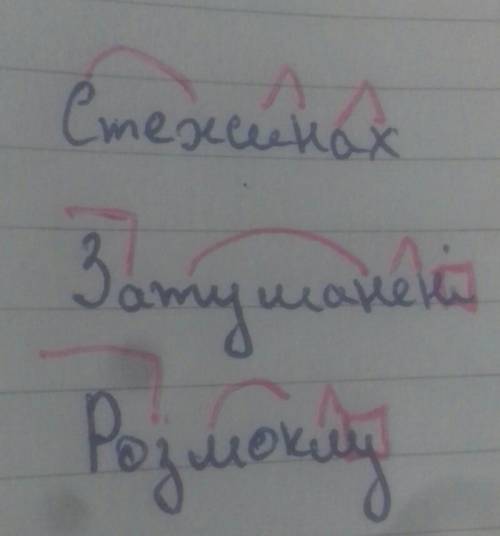 Стежинах
Затуманені
Розмоклу